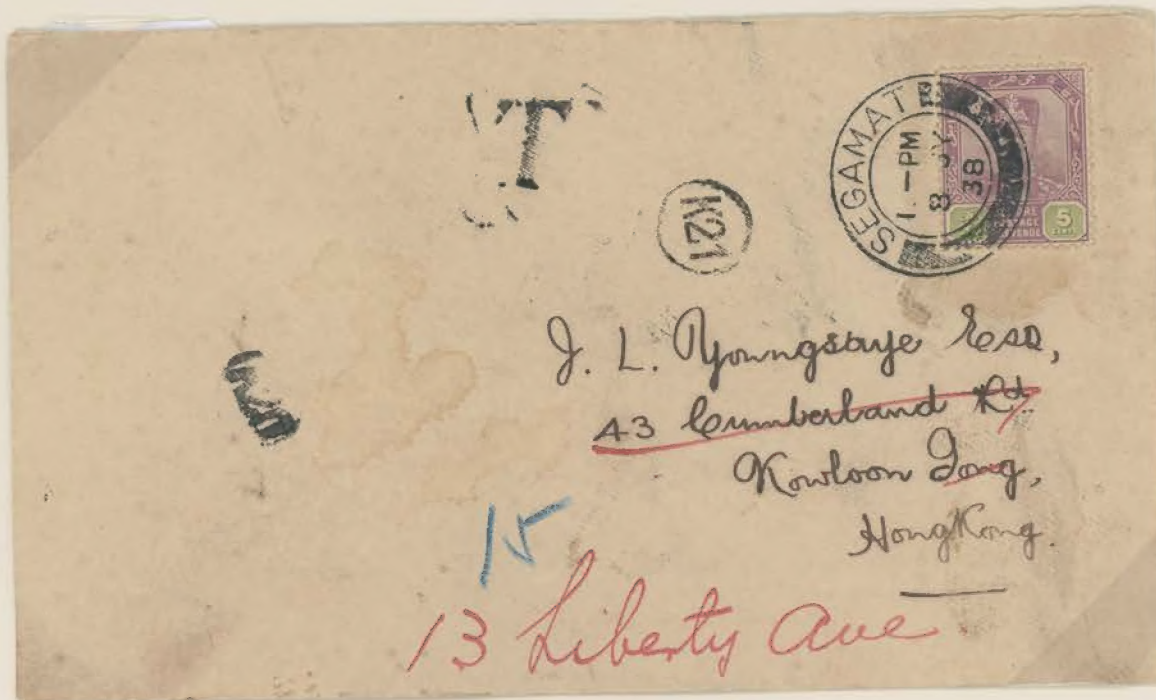 T
K21
SEGAMAT
1 - PM
8 JY
38
5
J. L. Youngsaye Esq,
43 Cumberland Rd
Kowloon Tong,
HongKong.
15
13 Liberty Ave